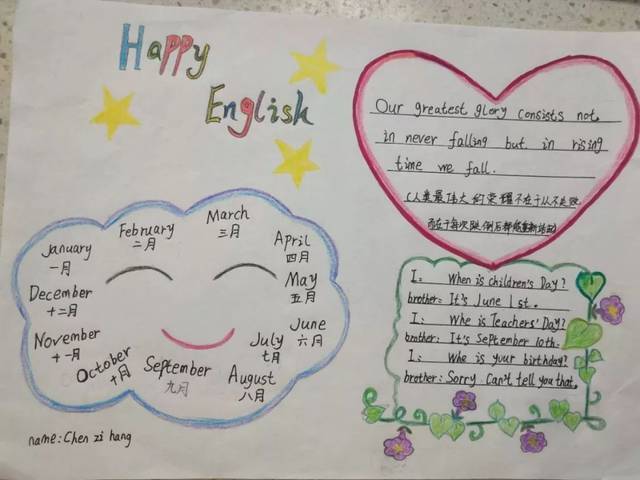 Happy
English
Our greatest glory consists not
in never falling but in rising
time we fall.
(人类最伟大的荣耀不在于从不跌倒
而在于每次跌倒后都能重新站起)
January
一月
February
二月
March
三月
April
四月
May
五月
June
六月
July
七月
August
八月
September
九月
October
十月
November
十一月
December
十二月
I: When is children's Day?
brother: It's June 1st.
I: Whe is Teachers' Day?
brother: It's September 10th.
I: Whe is your birthday?
brother: Sorry Can't tell you that.
name: Chen zi hang